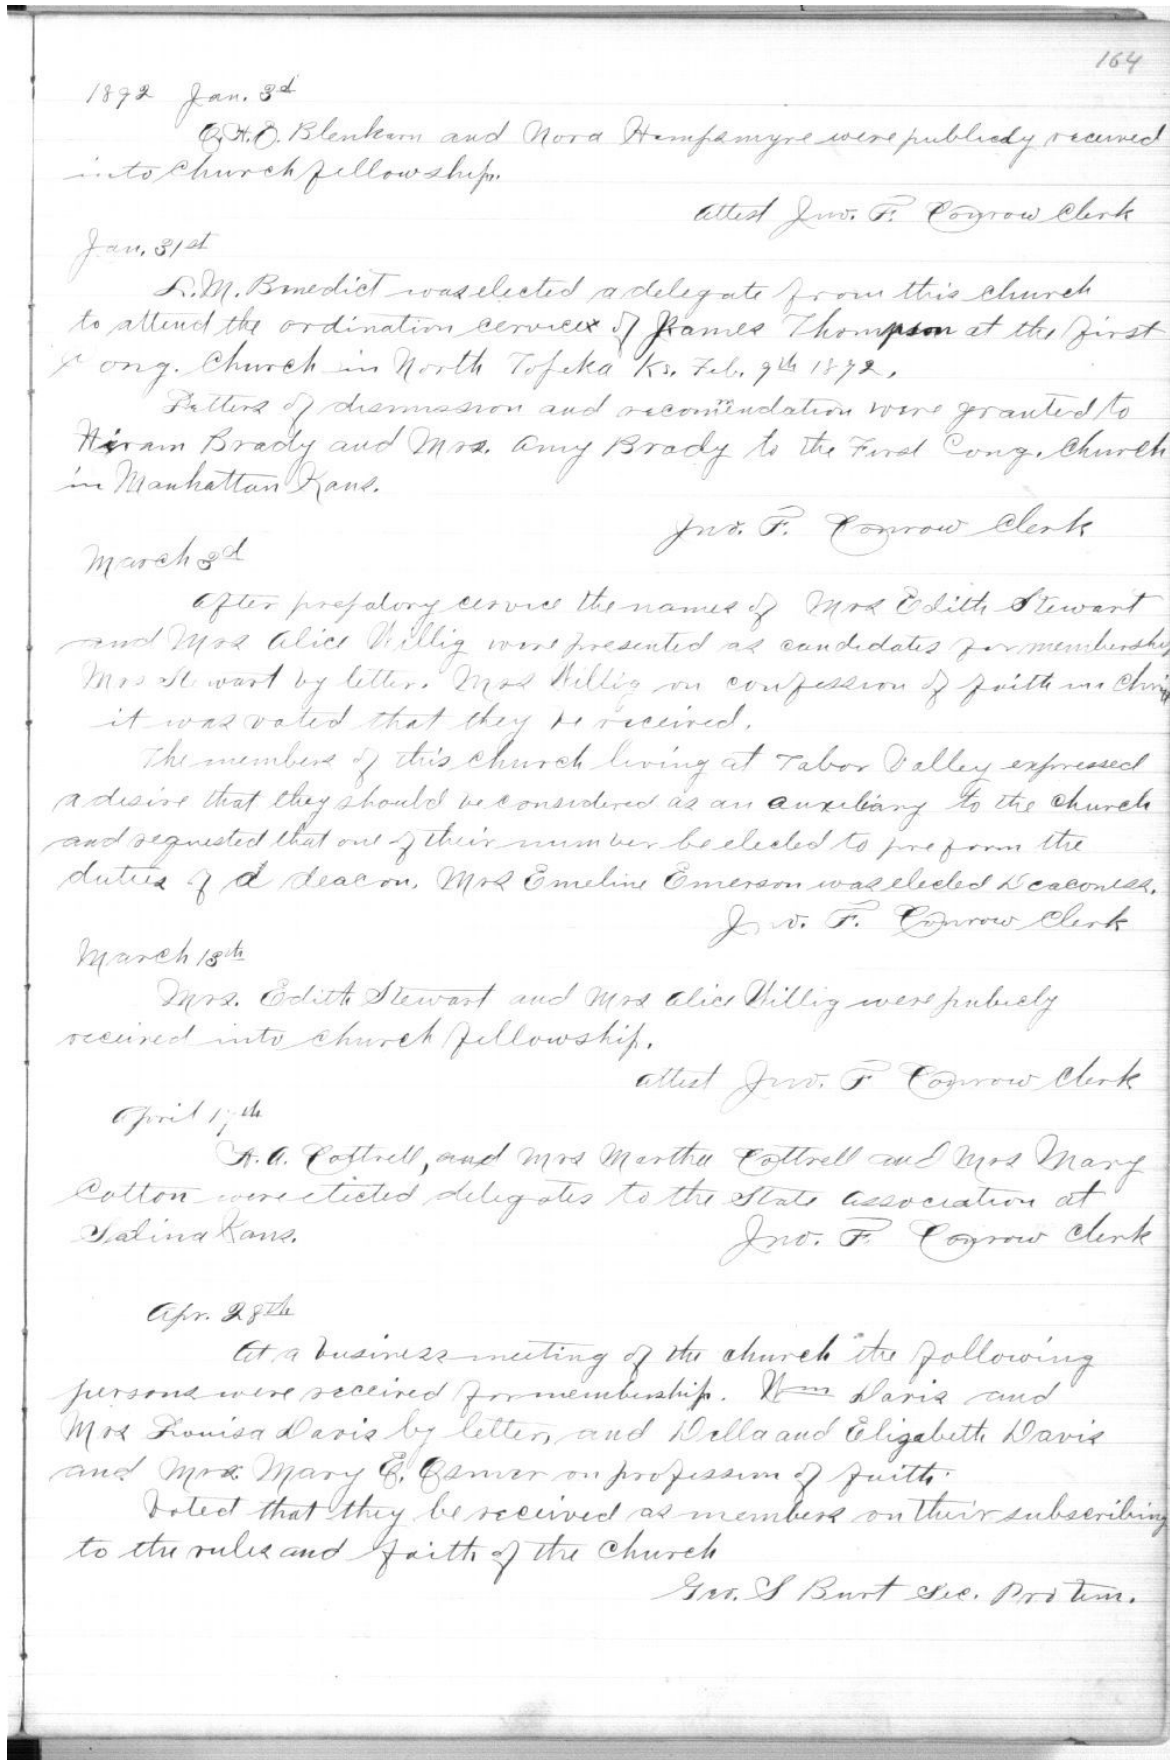 164
1892 Jan. 3d
Blenkarn and Nora Hempsmyre were publicly received
into church fellowship.
attest Jno. F. Conrow Clerk
Jan. 31st
L. M. Benedict was elected a delegate from this church
to attend the ordination cervices of James Thompson at the first
Cong. Church in North Topeka Ks. Feb. 9th 1892.
Letters of dismission and recomendation were granted to
Hiram Brady and Mrs. Amy Brady to the First Cong. Church
in Manhattan Kans.
Jno. F. Conrow Clerk
March 3d
After prepatory cervice the names of Mrs Edith Stewart
and Mrs Alice Willig were presented as candidates for membership
Mrs Stewart by letter. Mrs Willig on confession of faith in Christ
it was voted that they be received.
The members of this church living at Tabor Valley expressed
a desire that they should be considered as an auxiliary to the church
and requested that one of their number be elected to preform the
duties of a deacon. Mrs Emeline Emerson was elected Deaconess.
Jno. F. Conrow Clerk
March 13th
Mrs. Edith Stewart and Mrs Alice Willig were publicly
received into church fellowship.
attest Jno. F Conrow Clerk
April 17th
H. A. Cottrell, and Mrs Martha Cottrell and Mrs Mary
Cotton were elected delegates to the State Association at
Salina Kans. Jno. F. Conrow Clerk
Apr. 28th
At a business meeting of the church the following
persons were received for membership. Wm Davis and
Mrs Louisa Davis by letter, and Della and Elizabeth Davis
and Mrs Mary E. on profession of faith.
Voted that they be received as members on their subscribing
to the rules and faith of the church
Geo. S Burt Sec. Pro tem.